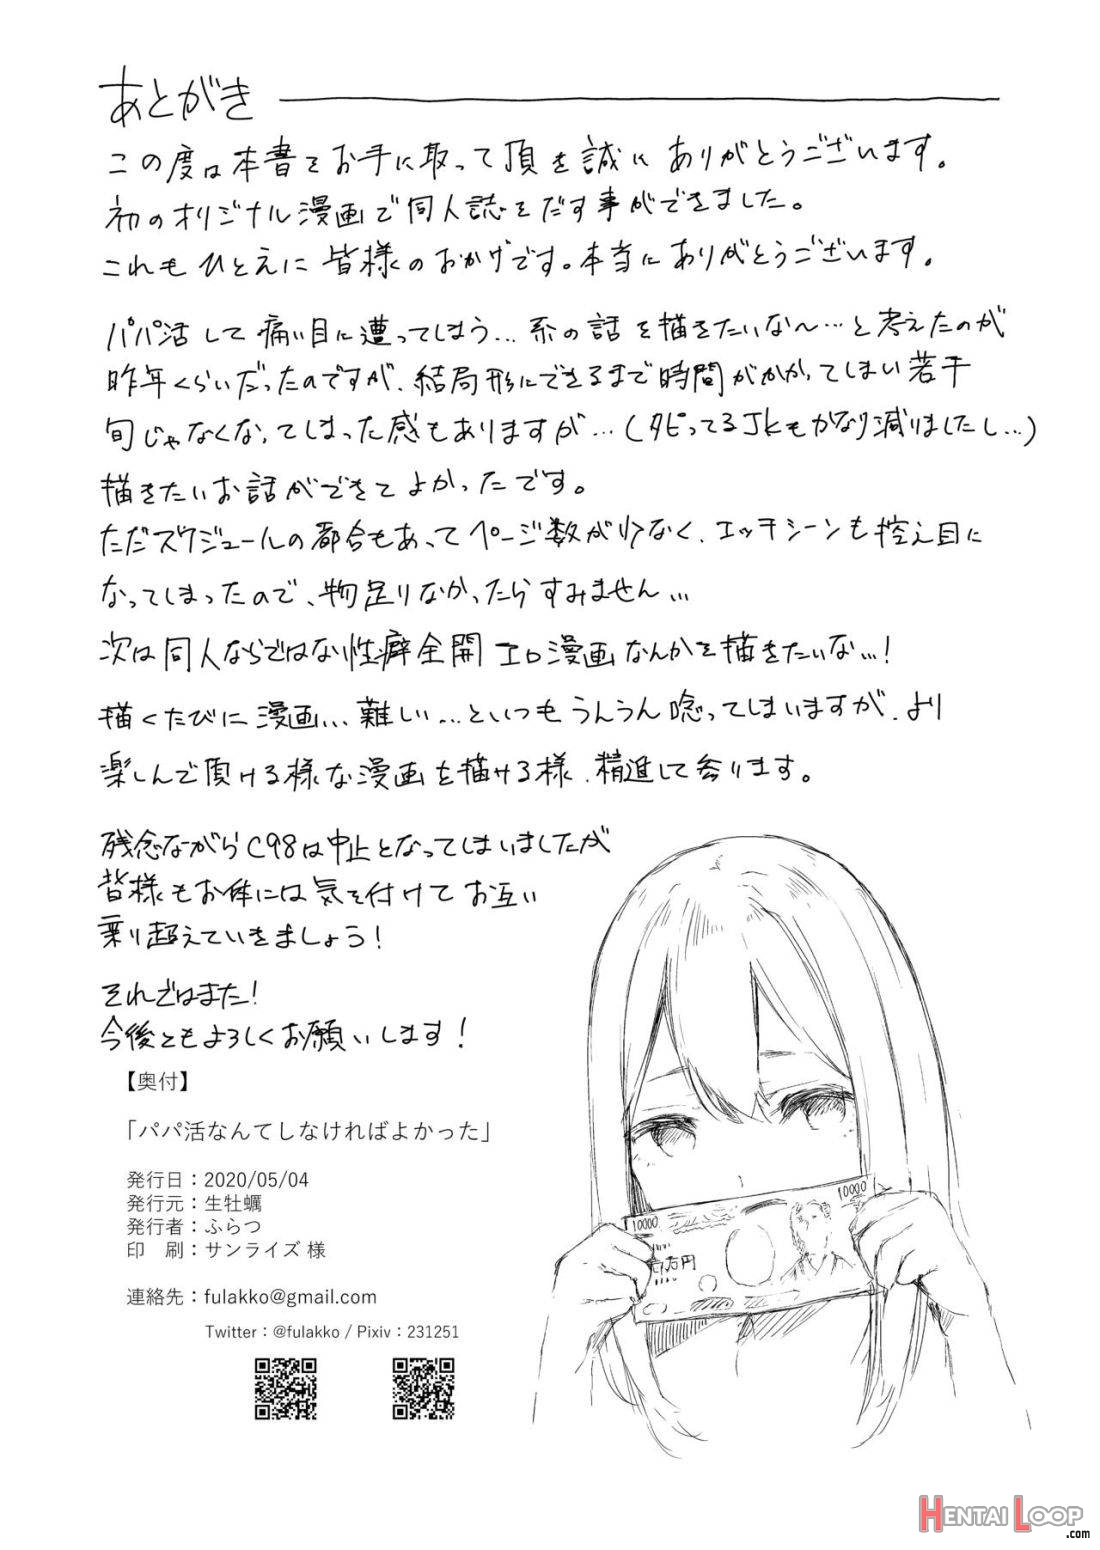 あとがき
この度は本書をお手に取って頂き誠にありがとうございます。
初のオリジナル漫画で同人誌をだす事ができました。
これもひとえに皆様のおかげです。本当にありがとうございます。
パパ活して痛い目に遭ってしまう…系の話を描きたいな〜…と考えたのが
昨年くらいだったのですが、結局形にできるまで時間がかかってしまい若干
旬じゃなくなってしまった感もありますが…(タピってるJKもかなり減りましたし…)
描きたいお話ができてよかったです。
ただスケジュールの都合もあってページ数が少なく、エッチシーンも控え目に
なってしまったので、物足りなかったらすみません…
次は同人ならではな性癖全開エロ漫画なんかを描きたいな…!
描くたびに漫画…難しい…といつもうんうん唸ってしまいますが、より
楽しんで頂ける様な漫画を描ける様、精進して参ります。
残念ながらC98は中止となってしまいましたが
皆様もお体には気を付けてお互い
乗り超えていきましょう!
それではまた!
今後ともよろしくお願いします!
【奥付】
「パパ活なんてしなければよかった」
発行日：2020/05/04
発行元：生牡蠣
発行者：ふらつ
印　刷：サンライズ 様
連絡先：fulakko@gmail.com
Twitter：@fulakko / Pixiv：231251
10000
10000
壱万円
HENTAI LOOP
.com